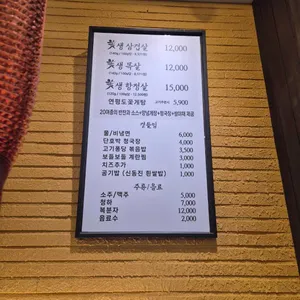 생 삼겹살 12,000
생 목살 12,000
생 항정살 15,000
연평도꽃게탕 5,900
곁들임
물/비냉면 6,000
단호박 청국장 4,000
고기퐁당 볶음밥 3,500
보들보들 계란찜 3,000
치즈추가 1,000
공기밥 (신동진 흰쌀밥) 1,000
주류/음료
소주/맥주 5,000
청하 7,000
복분자 12,000
음료수 2,000